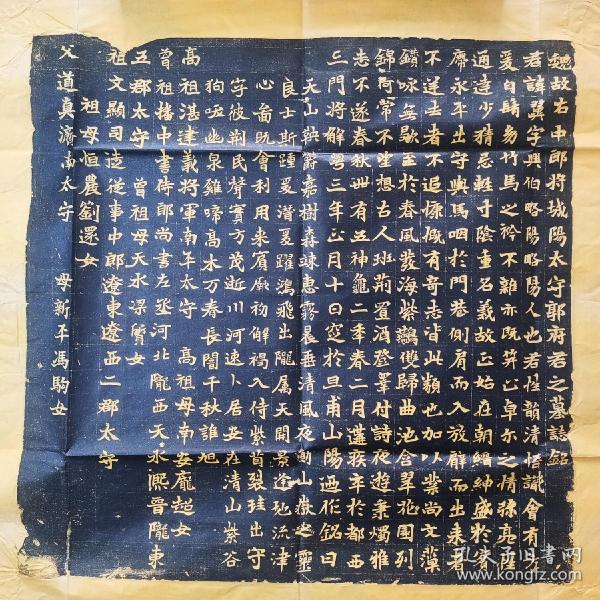 魏故右中郎將城陽太守郭府君之墓誌銘
君諱翼字興伯略陽略陽人也君性韻清悟識會有方
爰自髫 竹馬之衿不雜亦既笄 卓尒之情孤亮
通達少猜忌輕寸陰重名義故正始在朝縉紳盛於
齊永平出守輿馬咽於門巷側肩而入放辭而出來者
不逆 者不追慷慨有奇志皆此類也加以業尚文
鑽咏無歇至於春風發海紫鸝雙歸曲池含翠花園列
錦何常不坐想古人班荊置酒登 付詩夜遊秉燭雅
志不遂春秋卌有五神龜二年春二月遘疾卒於都西
三門將解 三年正月十日窆於旦甫山陽迺作銘曰
天山 嘉樹森竦惠露晨垂清風夜動山嶽之靈
良士斯踵爰潛爰躍鴻飛出隴屬天開景逢 流津
心 既會利用來賓 初解褐入侍紫 裂珪出守
字彼荊民聲實方茂逝川河速卜居安在清山紫谷
狗 幽泉雞啼高木万春長闇千秋誰旭
高祖湛建義將軍南平太守 高祖母南安龐超女
曾祖播中書侍郎尚書左丞河北隴西天水 晉隴東
五郡太守 曾祖母天水梁 女
祖文顯司造從事中郎遼東遼西二郡太守
祖母恒農劉還女
父道真濟南太守 母新平馮駒女
孔夫子旧書网
www.kongfz.com